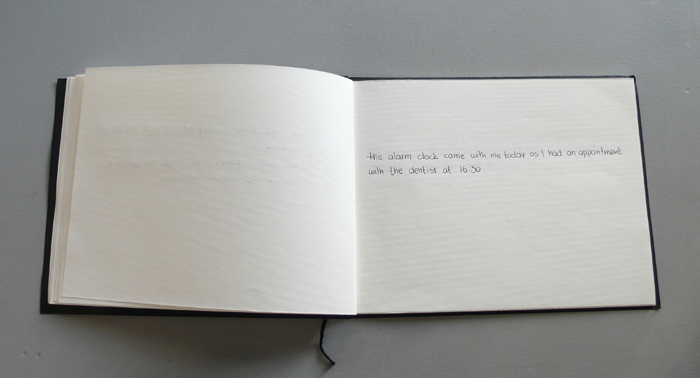 the alarm clock came with me today as I had an appointment
with the dentist at 16.30